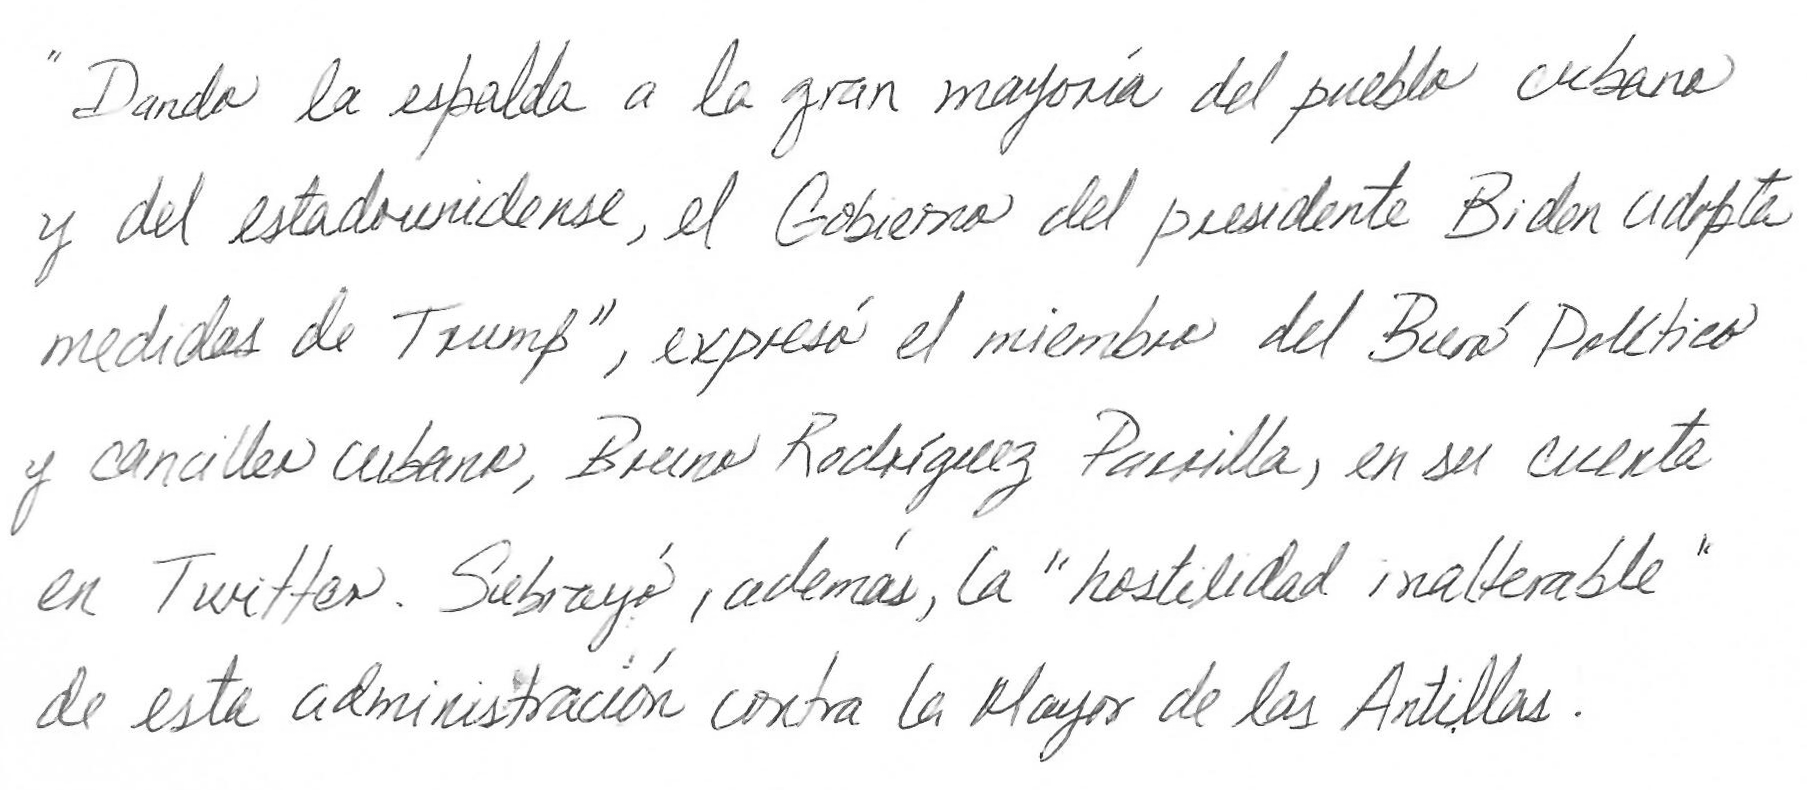 "Dando la espalda a la gran mayoría del pueblo cubano
y del estadounidense, el Gobierno del presidente Biden adopta
medidas de Trump", expresó el miembro del Buró Político
y canciller cubano, Bruno Rodríguez Parrilla, en su cuenta
en Twitter. Subrayó, además, la "hostilidad inalterable"
de esta administración contra la Mayor de las Antillas.